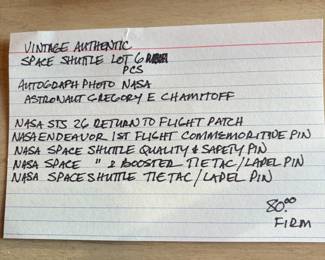 VINTAGE AUTHENTIC
SPACE SHUTTLE LOT 6
PCS
AUTOGRAPH PHOTO NASA
ASTRONAUT GREGORY E CHAMITOFF
NASA STS 26 RETURN TO FLIGHT PATCH
NASA ENDEAVOR 1ST FLIGHT COMMEMORITIVE PIN
NASA SPACE SHUTTLE QUALITY & SAFETY PIN
NASA SPACE " & BOOSTER TIE TAC/LAPEL PIN
NASA SPACE SHUTTLE TIE TAC/LAPEL PIN
80.00
FIRM